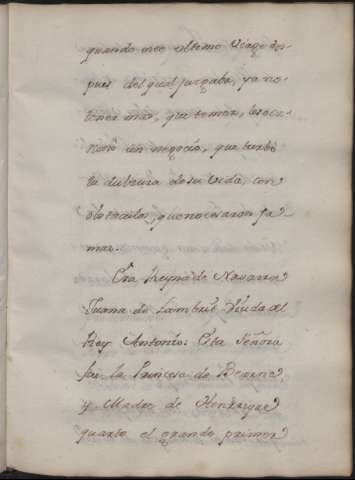 quando mee ultimo Viage des-
pues del qual juzgaba, ya no-
tener mas, que temer, le oca-
siono un negocio, que turbò
la dulzura de su vida, con
obstaculos, que no cesaron ja-
mas.
Era Reyna de Navarra
Juana de Lambrit Viuda del
Rey Antonio: Esta Señora
fue la Princesa de Bearne,
y Madre de Henrrique
quarto el grande primer